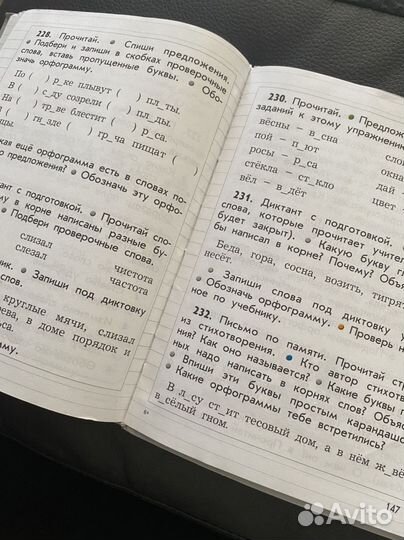 228. Прочитай. Спиши предложения.
Подбери и запиши в скобках проверочные
слова, вставь пропущенные буквы. Обо-
значь орфограмму.
По ( ) р_ке плывут ( ) пл_ты.
В ( ) с_ду созрели ( ) пл_ды.
На ( ) тр_ве блестит ( ) р_са.
( ) гн_зде ( ) гр_ча пищат ( )
ещё орфограмма есть в словах
предложения? Обозначь эту орфо-
Диктант с подготовкой. Прочитай
в корне написаны разные бу-
Подбери проверочные слова.
слизал чистота
слезал частота
Запиши под диктовку
слов.
круглые мячи, слизал
в доме порядок и
230. Прочитай. Предлож
заданий к этому упражнению
вёсны – в_сна
пой – п_ют
росы – р_са окна
стёкла – ст_кло дай –
вёл – в_дёт цвет –
231. Диктант с подготовкой.
слова, которые прочитает учител
будет закрыт). Какую букву
бы написал в корне? Почему? Объя
Бела, гора, сосна, возить, тигр
несёт.
Запиши слова под диктовку у
Обозначь орфограмму. Проверь н
ное по учебнику.
232. Письмо по памяти. Прочитай стр
из стихотворения. Кто автор стихот
ния? Как оно называется? Какие буквы
ных надо написать в корнях слов? Объя
Впиши эти буквы простым карандашо
Какие орфограммы тебе встретились?
В л_су ст_ит тесовый дом, а в нём ж_в
в_сёлый гном.
147
Avito